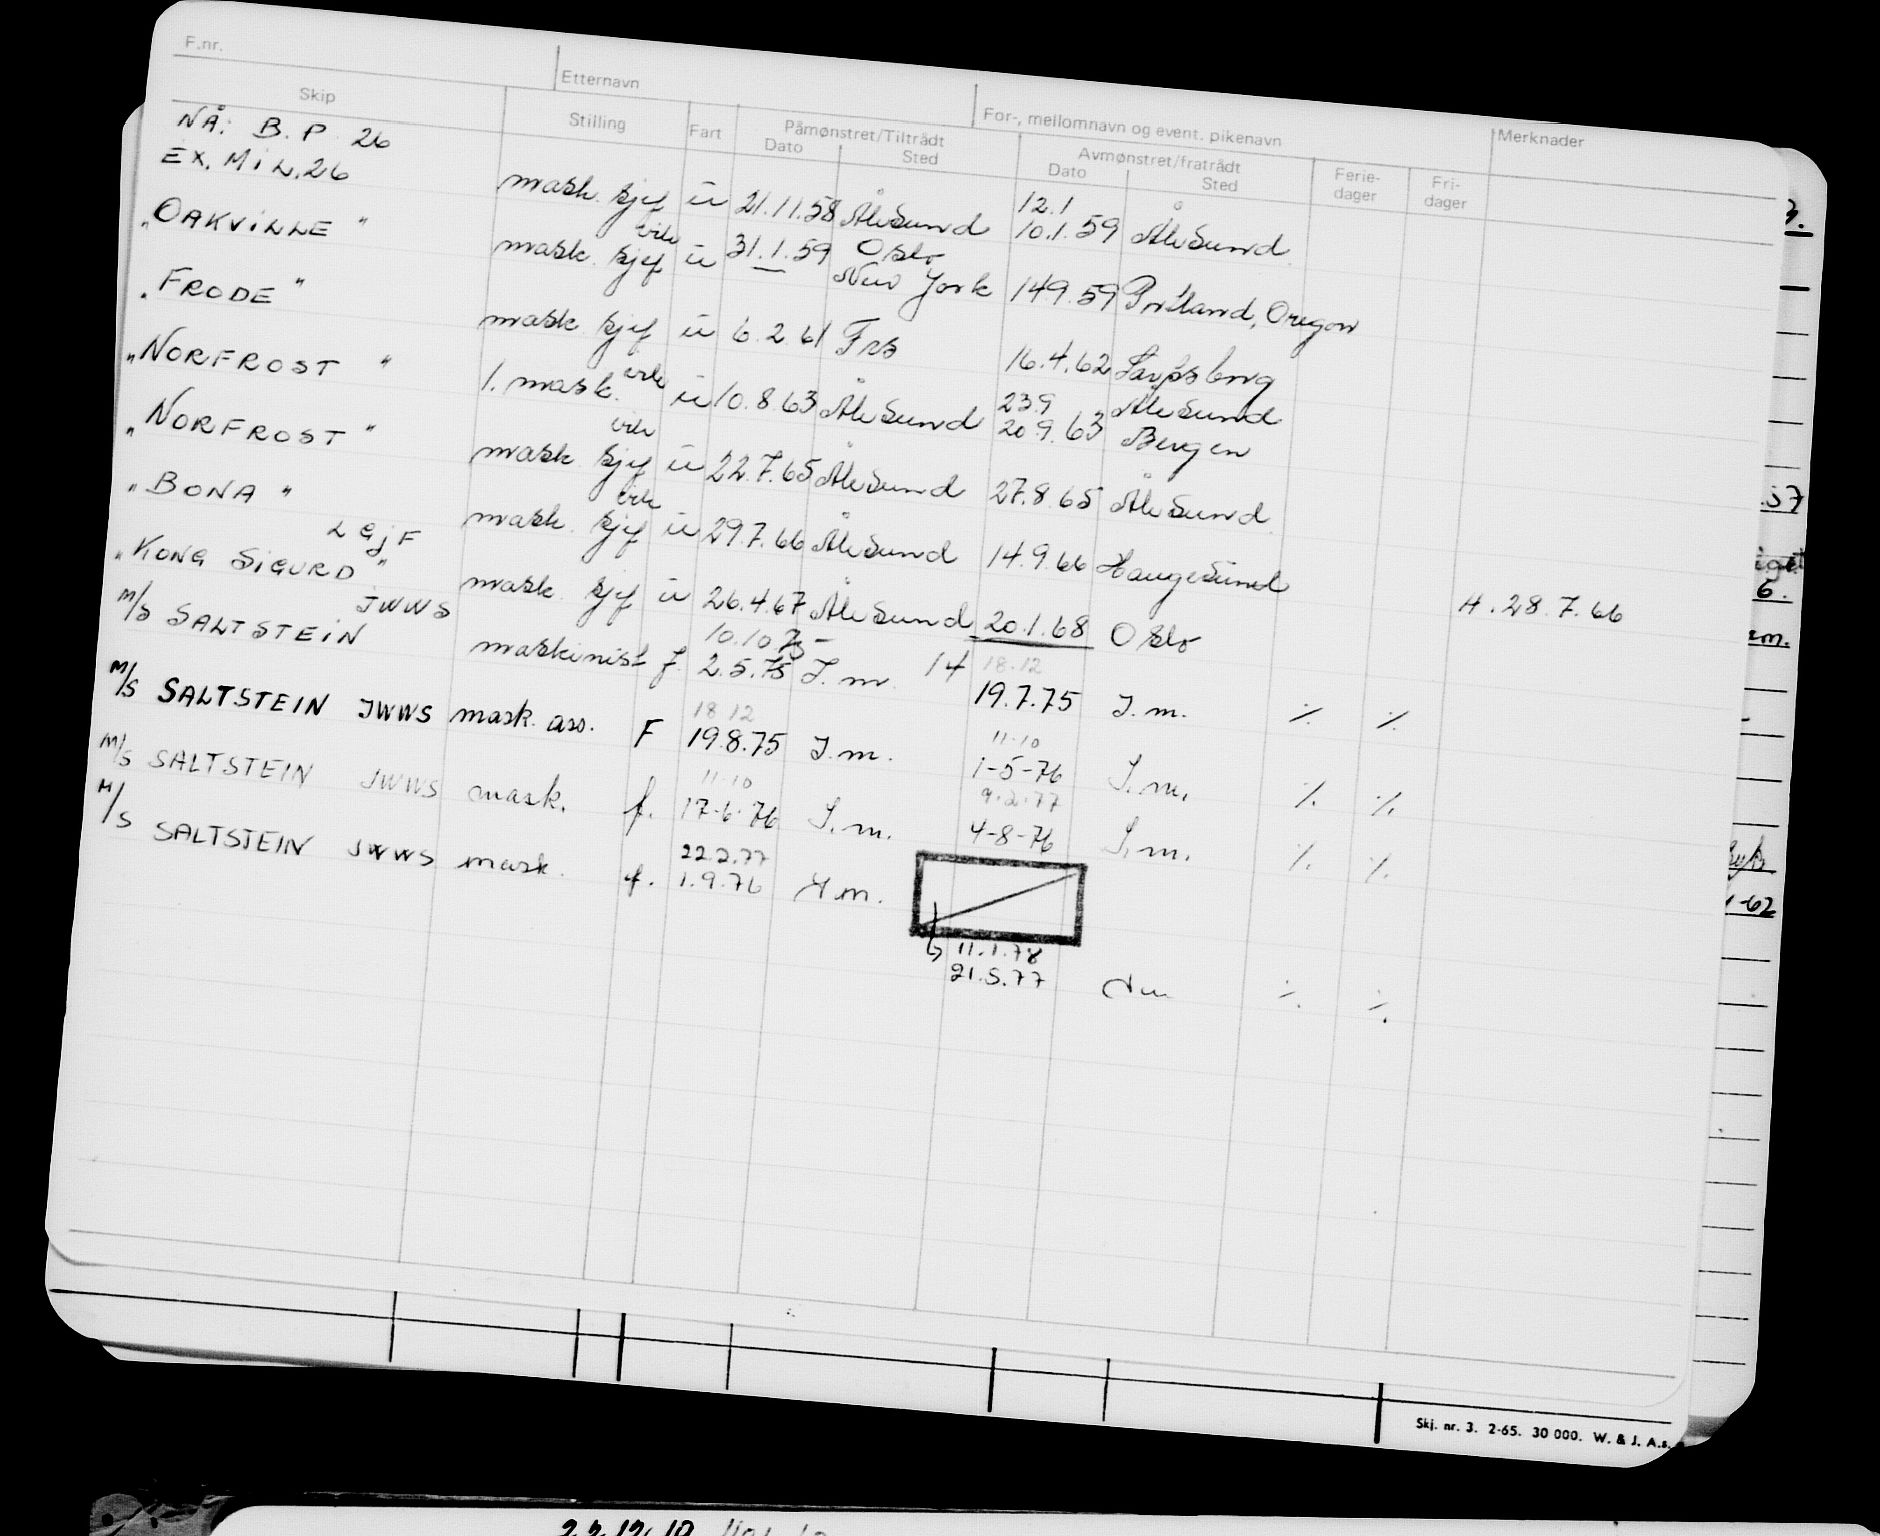 F.nr. Etternavn For-, mellomnavn og event. pikenavn
Skip Stilling Fart Påmønstret/Tiltrådt Avmønstret/fratrådt Ferie- Fri- Merknader
Dato Sted Dato Sted dager dager
NÅ: B.P 26
EX. MIL.26 mask. sjef u 21.11.58 Ålesund 12.1
10.1.59 Ålesund
"OAKVILLE" vik Oslo
mask. sjef u 31.1.59 New York 149.59 Portland, Oregon
"FRODE" mask sjef u 6.2.61 16.4.62 Sarpsborg
"NORFROST" vik 23.9 Ålesund
1. mask. u 10.8.63 Ålesund 20.9.63 Bergen
"NORFROST" vik
mask sjef u 22.7.65 Ålesund 27.8.65 Ålesund
"BONA" vik
mask. sjef u 29.7.66 Ålesund 14.9.66 Haugesund
LGJF
"KONG SIGURD" mask sjef u 26.4.67 Ålesund 20.1.68 Oslo H. 28.7.66
JWWS 10.10 75 18.12
M/S SALTSTEIN maskinist f. 2.5.75 I.m. 14 19.7.75 I.m. ·/. ·/.
18 12 11.10
M/S SALTSTEIN JWWS mask. ass. F 19.8.75 I.m. 1-5-76 I.m. ·/. ·/.
11.10 9.2.77
M/S SALTSTEIN JWWS mask. f. 17-6-76 I.m. 4-8-76 I.m. ·/. ·/.
22.2.77
M/S SALTSTEIN JWWS mask. f. 1.9.76
11.1.78
21.5.77 ·/. ·/.
.57
6.
-62
Skj. nr. 3. 2-65. 30 000. W. & J. A.s.
22.12.10